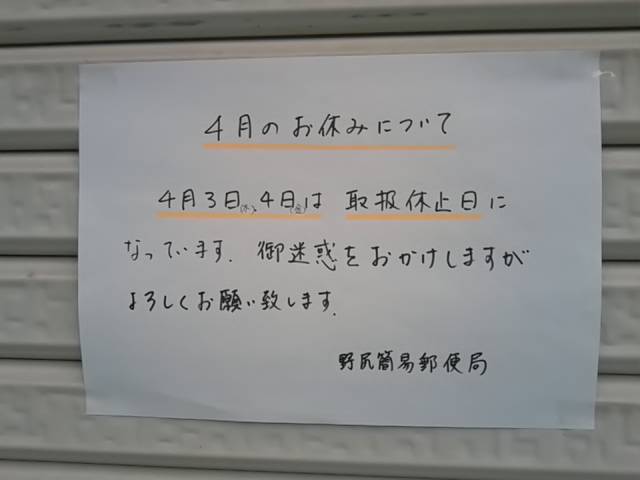 4月のお休みについて
4月3日(木)、4日(金)は 取扱休止日に
なっています. 御迷惑をおかけしますが
よろしくお願い致します.
野尻簡易郵便局